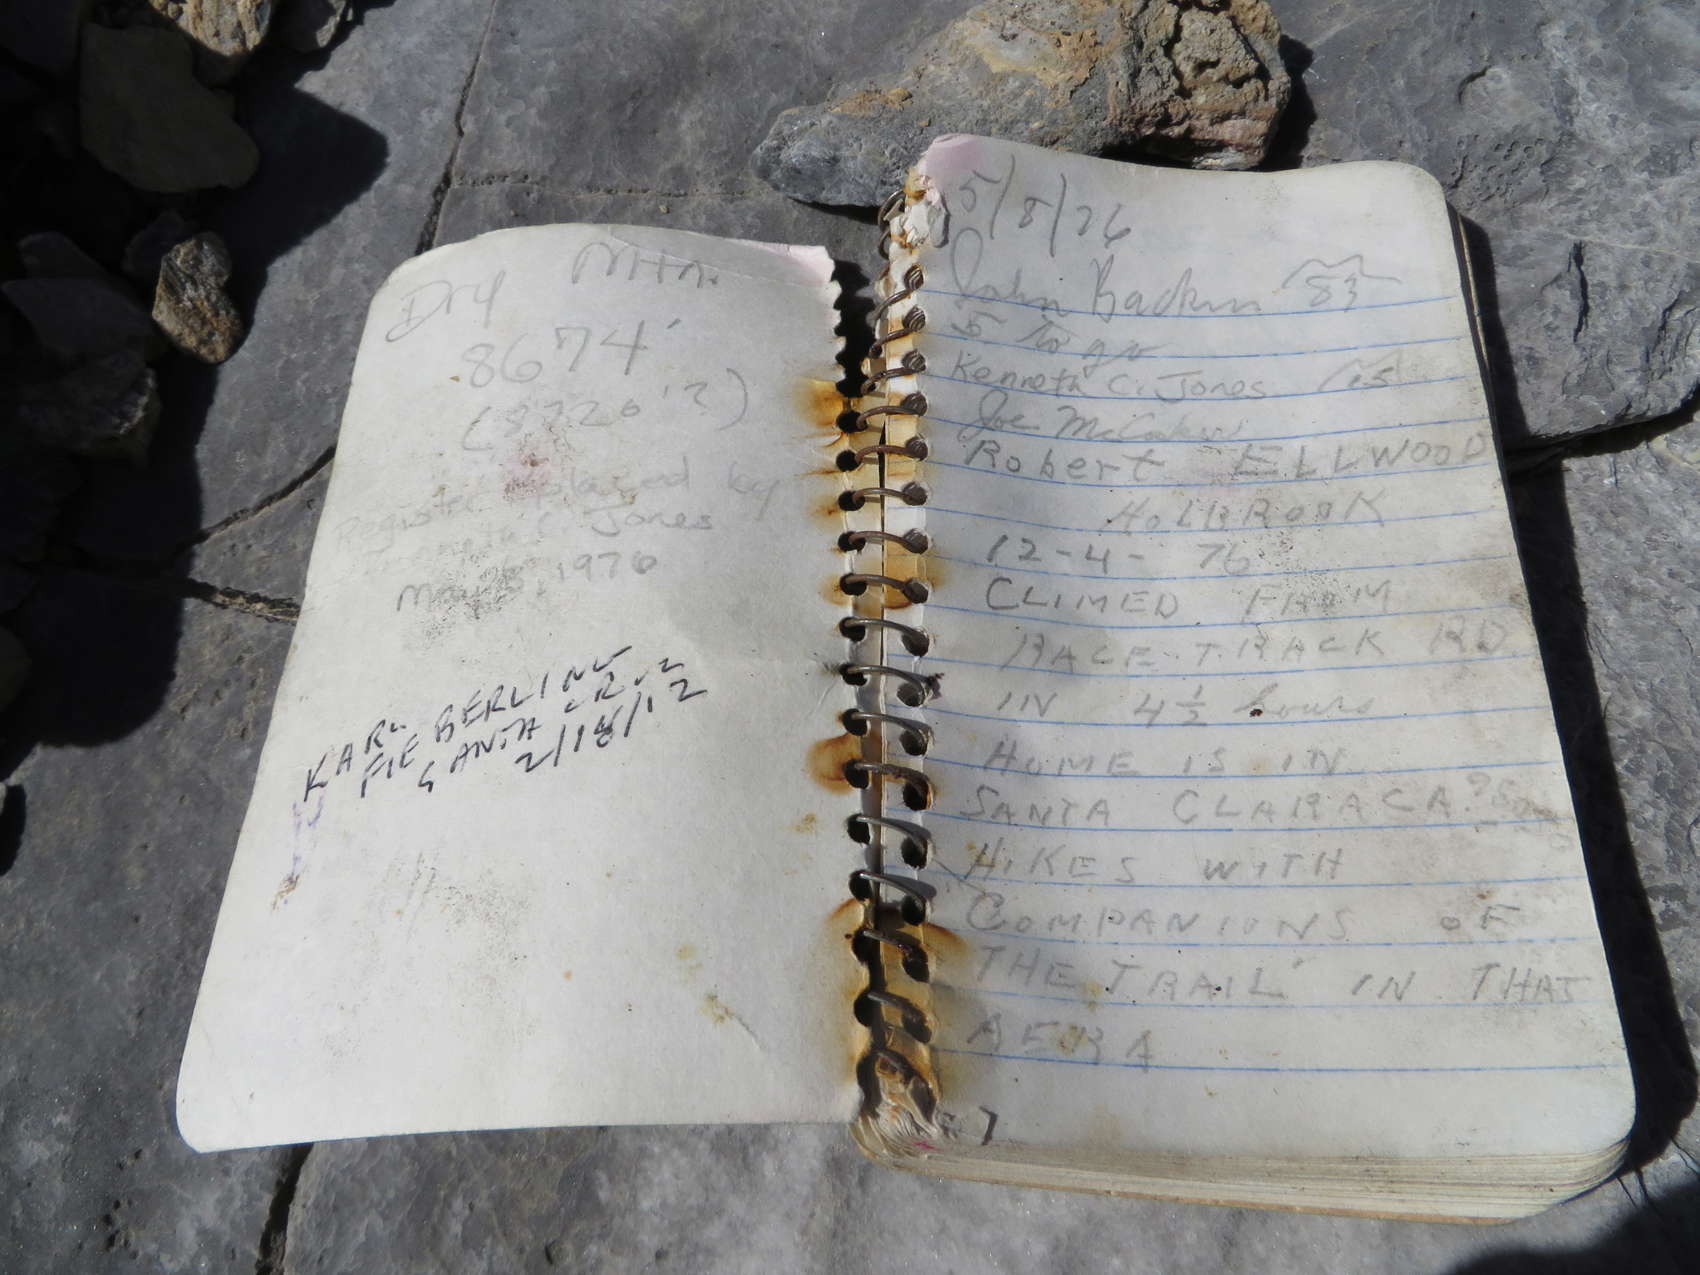 Dry Mtn.
8674'
(8726'?)
Register placed by
Kenneth C. Jones
May 8, 1976
KARL
FIEBERLING
SANTA CRUZ
2/18/12
5/8/76
John Backus 83
5 to go
Kenneth C. Jones 15
Joe McCosker
Robert ELLWOOD
HOLBROOK
12-4-76
CLIMED FROM
RACE TRACK RD
IN 4½ hours
HOME IS IN
SANTA CLARA CA.
HIKES WITH
COMPANIONS OF
THE TRAIL' IN THAT
AERA